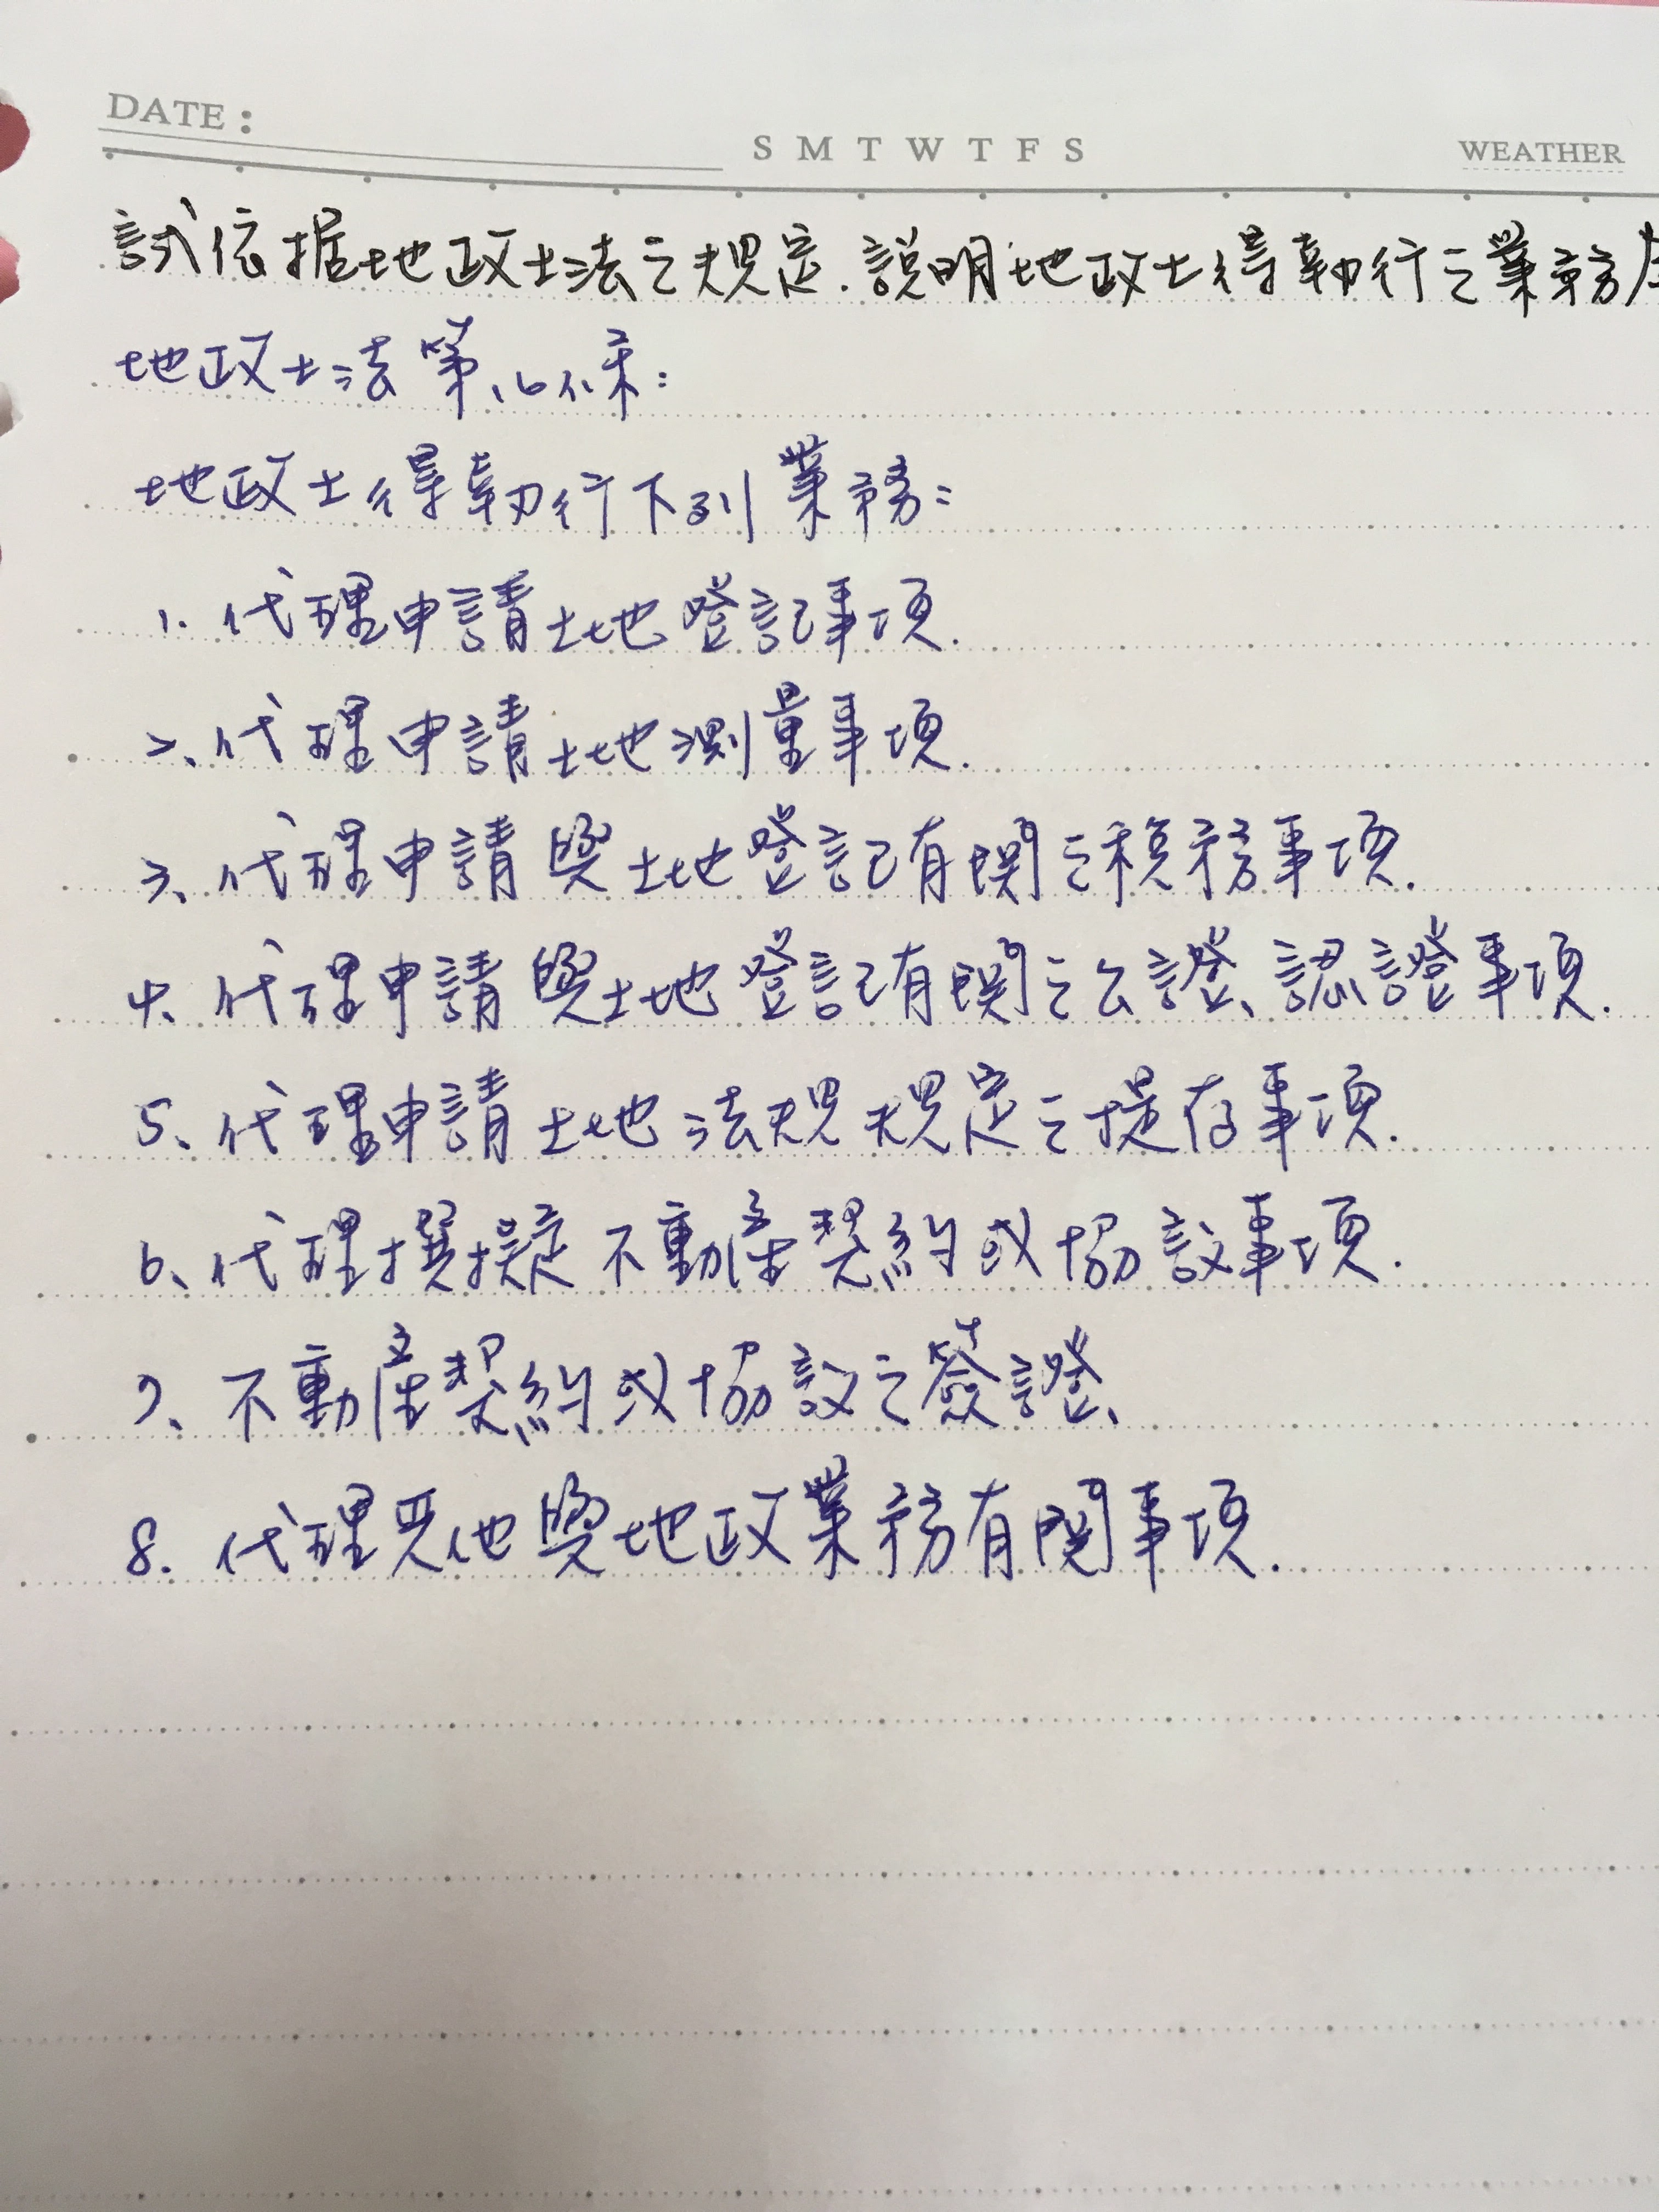 DATE：
S M T W T F S
WEATHER
試依据地政士法之規定.説明地政士得執行之業務
地政士法第16條：
地政士得執行下列業務：
1. 代理申請土地登記事項.
2、代理申請土地測量事項.
3、代理申請與土地登記有関之稅務事項.
4、代理申請與土地登記有関之公證、認證事項.
5、代理申請土地法規規定之提存事項.
6、代理撰擬不動產契約或協議事項.
7、不動產契約或協議之簽證、
8. 代理其他與地政業務有関事項.